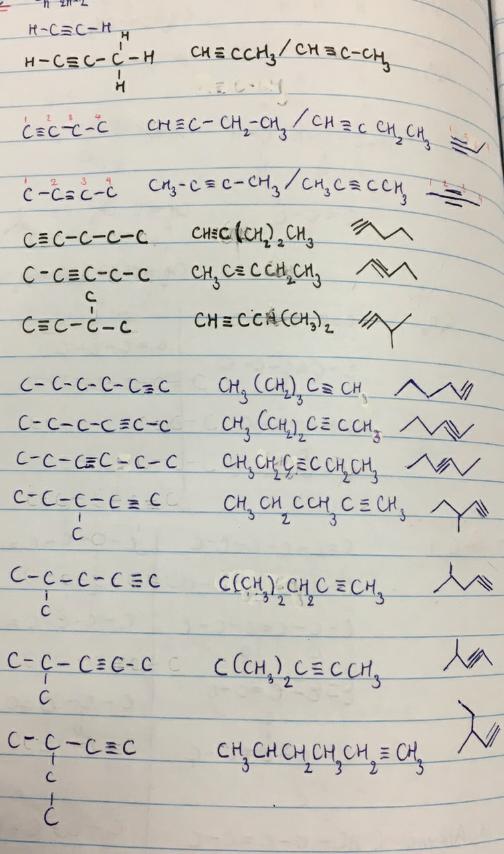 H-C≡C-H
H
H-C≡C-C-H CH≡CCH3/CH≡C-CH3
H
1 2 3 4
C≡C-C-C CH≡C-CH2-CH3/CH≡C CH2CH3
1 2 3 4
C-C≡C-C CH3-C≡C-CH3/CH3C≡CCH3
C≡C-C-C-C CH≡C(CH2)2CH3
C-C≡C-C-C CH3C≡CCH2CH3
C
C≡C-C-C CH≡CCH(CH3)2
C-C-C-C-C≡C CH3(CH2)3C≡CH
C-C-C-C≡C-C CH3(CH2)2C≡CCH3
C-C-C≡C-C-C CH3CH2C≡CCH2CH3
C-C-C-C≡C CH3CH2CCH3C≡CH3
C
C-C-C-C≡C C(CH3)2CH2C≡CH3
C
C-C-C≡C-C C(CH3)2C≡CCH3
C
C-C-C≡C CH3CHCH2CH3CH2≡CH3
C
C